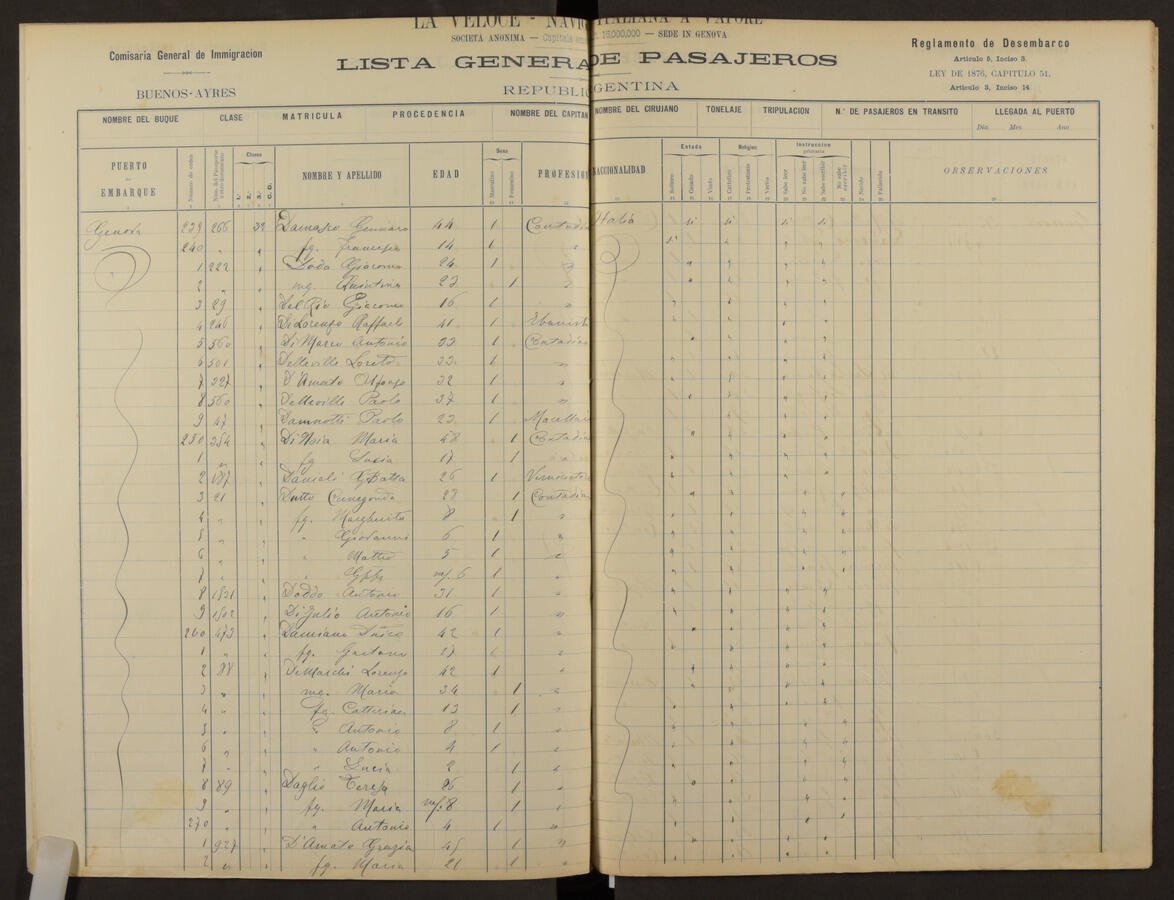 LA VELOCE - NAV ITALIANA A VAPORE
SOCIETA ANONIMA — Capitale 15,000,000 — SEDE IN GENOVA
Comisaria General de Immigracion
BUENOS-AYRES
LISTA GENERA DE PASAJEROS
REPUBLI GENTINA
Reglamento de Desembarco
Articulo 5, Inciso 3.
LEY DE 1876, CAPITULO 51,
Articulo 3, Inciso 14
NOMBRE DEL BUQUE CLASE MATRICULA PROCEDENCIA NOMBRE DEL CAPITAN NOMBRE DEL CIRUJANO TONELAJE TRIPULACION N.° DE PASAJEROS EN TRANSITO LLEGADA AL PUERTO
Dia Mes Ano
PUERTO DE EMBARQUE Número de orden Clases 1.ª 2.ª 3.ª NOMBRE Y APELLIDO EDAD Sexo Masculino Femenino PROFESION NACCIONALIDAD Estado Soltero Casado Viudo Religion Catolico Protestante Varios Instruccion primaria Sabe leer No sabe leer Sabe escribir No sabe escribir Nacido Fallecido OBSERVACIONES
Genova 239 266 3ª Damaso Gennaro 44 1 Contadi Italia
240 " " fg. Francesco 14 1 "
1 222 " Giacomo 24 1 "
2 " " mg. Quintina 23 1 "
3 29 " Del Rio Giacomo 16 1 "
4 246 " Di Lorenzo Raffaele 41 1 Ebanist
5 560 " Di Marco Antonio 33 1 Contadin
6 501 " Delleville Loreto 33 1 "
7 327 " D'Amato 32 1 "
8 560 " Delleville Paolo 37 1 "
9 47 " Paolo 23 1 Macellai
250 354 " Maria 48 1 Contadin
1 " " fg. Lucia 17 1 "
2 187 " Danieli GBatta 26 1
3 21 " Dutto Cunegonda 28 1 Contadin
4 " " fg. Margherita 8 1 "
5 " " " Giovanni 6 1 "
6 " " " Matteo 5 1 "
7 " " " m/. 6 1 "
8 1521 " Antonio 31 1 "
9 1502 " Di Julio Antonio 16 1 "
260 473 " Damiano 42 1 "
1 " " fg. Gaetano 17 1 "
2 88 " De Marchi Lorenzo 42 1 "
3 " " mg. Maria 34 1 "
4 " " fg. Catterina 13 1 "
5 " " " Antonio 8 1 "
6 " " " Antonio 4 1 "
7 " " " Lucia 2 1 "
8 89 " Daglio Teresa 26 1 "
9 " " fg. Maria m/. 8 1 "
270 " " " Antonio 4 1 "
1 927 " D'Amato Grazia 45 1 "
2 " " fg. Maria 21 1 "